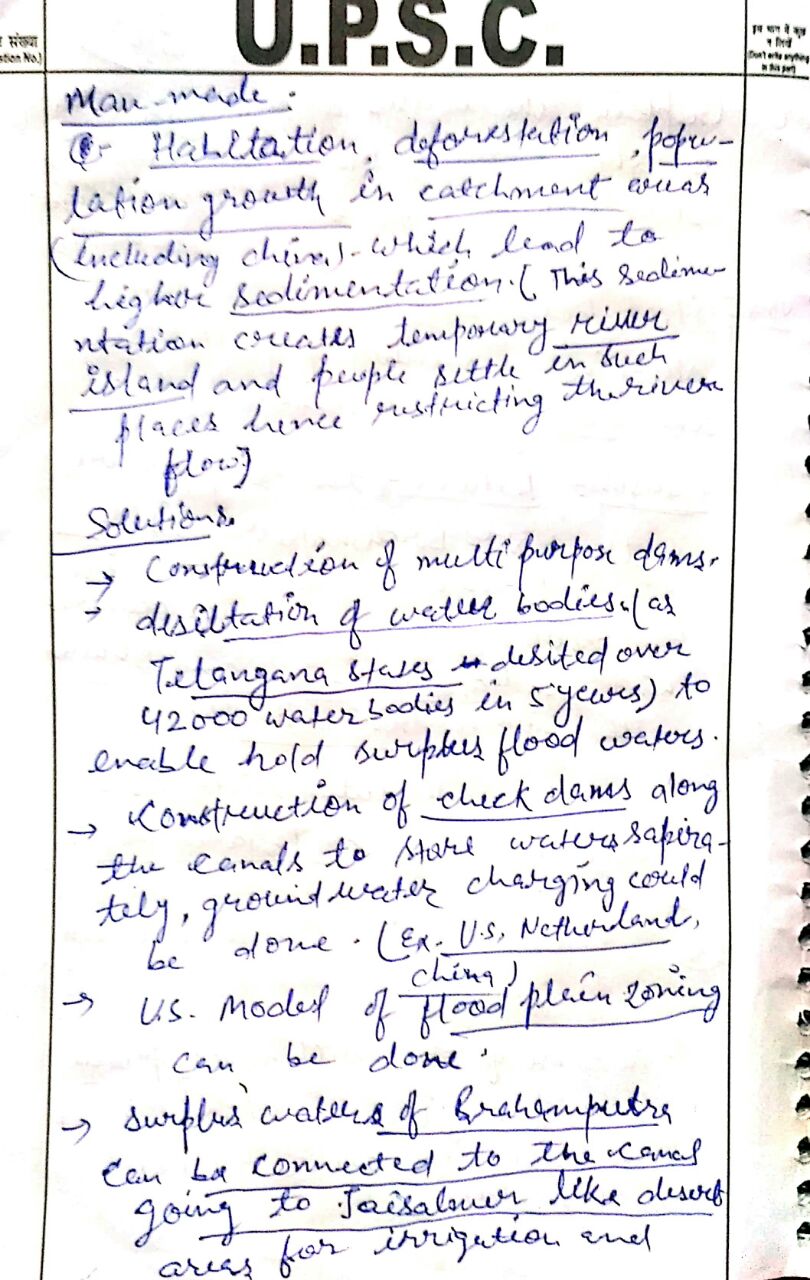 U.P.S.C.
संख्या
stion No.)
इस भाग में कुछ
न लिखें
(Don't write anything
in this part)
Man-made:
Habitation, deforestation, popu-
lation growth in catchment areas
(including china). which lead to
higher sedimentation. (This sedime-
ntation creates temporary river
island and people settle in such
places hence restricting the river
flow)
Solutions.
→ Construction of multi purpose dams.
→ desiltation of water bodies. (as
Telangana states desilted over
42000 water bodies in 5 years) to
enable hold surplus flood waters.
→ Construction of check dams along
the canals to store waters sapira-
tely, ground water charging could
be done. (Ex. U.S, Netherland,
china)
→ U.S. Model of flood plain zoning
can be done.
→ Surplus waters of Brahamputra
can be connected to the canal
going to Jaisalmer like desert
areas for irrigation and